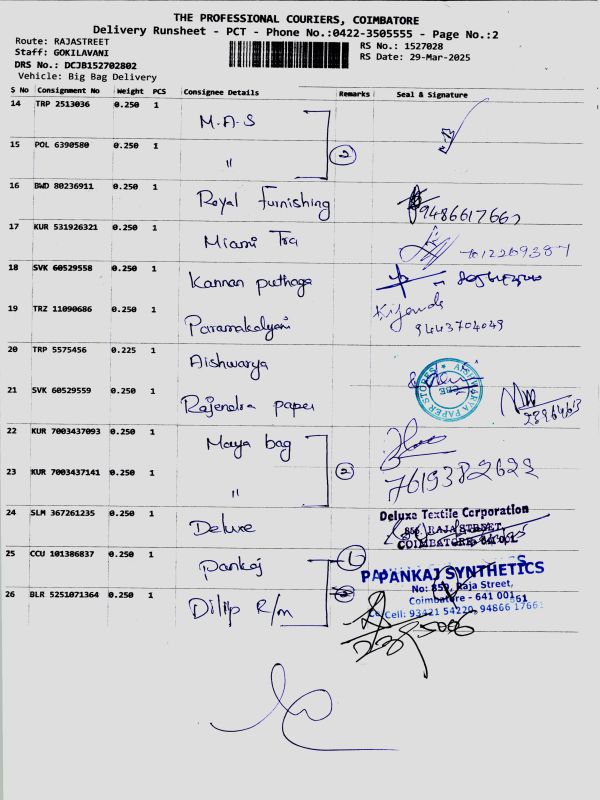 THE PROFESSIONAL COURIERS, COIMBATORE
Delivery Runsheet - PCT - Phone No.:0422-3505555 - Page No.:2
Route: RAJASTREET
RS No.: 1527028
Staff: GOKILAVANI
RS Date: 29-Mar-2025
DRS No.: DCJB152702802
Vehicle: Big Bag Delivery
S No Consignment No Weight PCS Consignee Details Remarks Seal & Signature
14 TRP 2513036 0.250 1 M.A.S
15 POL 6390580 0.250 1 " 2
16 BWD 80236911 0.250 1 Royal Furnishing
17 KUR 531926321 0.250 1 Miami Tra
18 SVK 60529558 0.250 1 Kannan puthaga
19 TRZ 11090686 0.250 1 Paramakalyani 9443704049
20 TRP 5575456 0.225 1 Aishwarya
AISHWARYA PAPER STORES
CBE
21 SVK 60529559 0.250 1 Rajendra paper
22 KUR 7003437093 0.250 1 Maya bag
23 KUR 7003437141 0.250 1 " 2 7619382622
24 SLM 367261235 0.250 1 Deluxe
Deluxe Textile Corporation
856, RAJA STREET,
COIMBATORE - 641 001
25 CCU 101386837 0.250 1 Pankaj 1
PANKAJ SYNTHETICS
No: 859, Raja Street,
Coimbatore - 641 001
Cell: 93421 54220, 94866 17661
26 BLR 5251071364 0.250 1 Dilip R/m